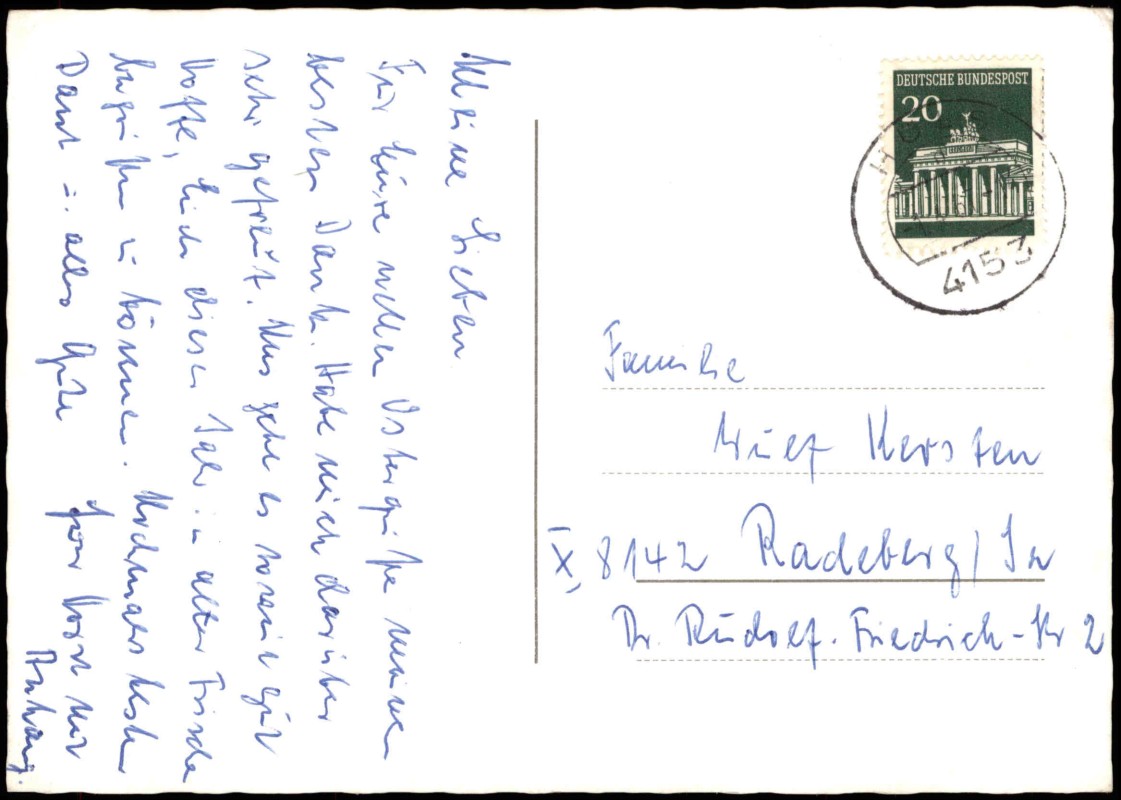 Meine Lieben
Für Eure netten Ostergrüße meinen
besten Dank. Habe mich darüber
sehr gefreut. Uns geht es soweit gut
hoffe, Euch dieses Jahr in alter Frische
begrüßen zu können. Nochmals besten
Dank u. alles Gute
Euer Horst mit
Anhang.
DEUTSCHE BUNDESPOST
20
4153
Familie
Wulf Kersten
X, 8142 Radeberg/Sa
Dr. Rudolf-Friedrich-Str 2